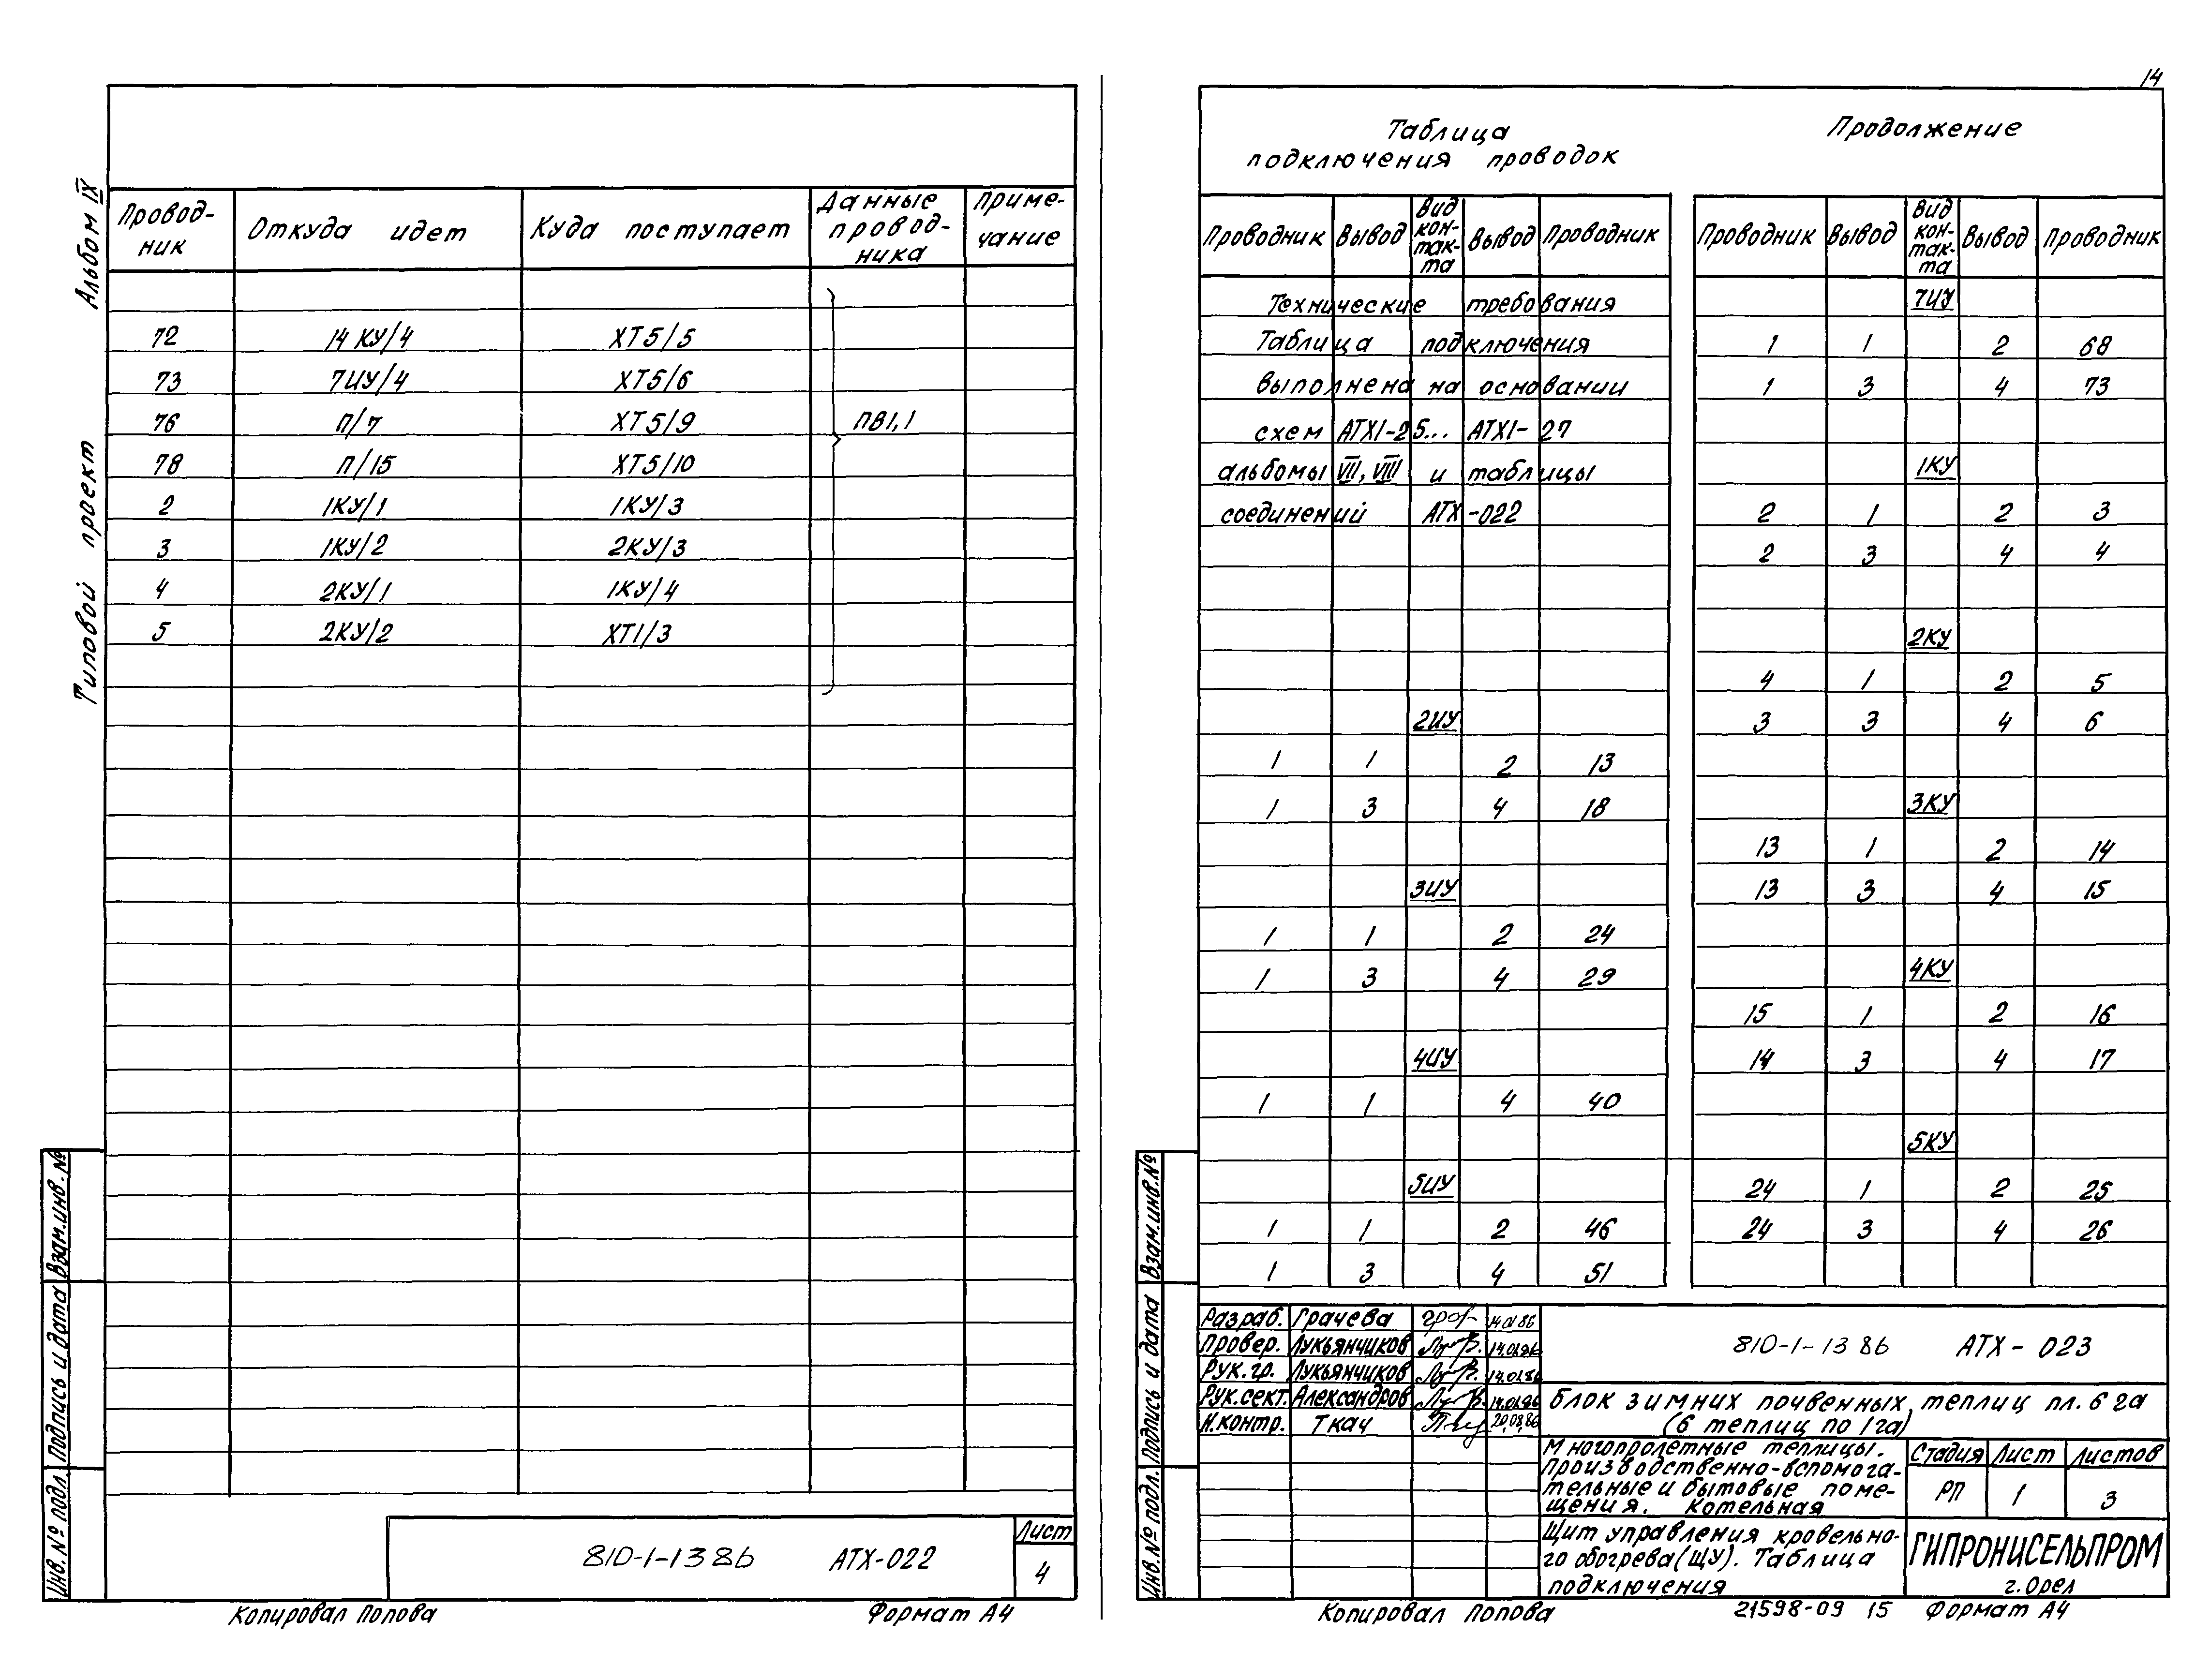 14
Альбом IX
Типовой проект
Провод-
ник
Откуда идет
Куда поступает
Данные
провод-
ника
Приме-
чание
72 14КУ/4 ХТ5/5
73 7ИУ/4 ХТ5/6
76 П/7 ХТ5/9 ПВ1,1
78 П/15 ХТ5/10
2 1КУ/1 1КУ/3
3 1КУ/2 2КУ/3
4 2КУ/1 1КУ/4
5 2КУ/2 ХТ1/3
Взам.инв.№
Подпись и дата
Инв.№ подл.
810-1-13 86 АТХ-022
Лист
4
Копировал Попова Формат А4
Таблица
подключения проводок
Проводник Вывод Вид кон-так-та Вывод Проводник
Технические требования
Таблица подключения
выполнена на основании
схем АТХ1-25... АТХ1-27
альбомы VII, VIII и таблицы
соединений АТХ-022
2ИУ
1 1 2 13
1 3 4 18
3ИУ
1 1 2 24
1 3 4 29
4ИУ
1 1 4 40
5ИУ
1 1 2 46
1 3 4 51
Продолжение
Проводник Вывод Вид кон-так-та Вывод Проводник
7ИУ
1 1 2 68
1 3 4 73
1КУ
2 1 2 3
2 3 4 4
2КУ
4 1 2 5
3 3 4 6
3КУ
13 1 2 14
13 3 4 15
4КУ
15 1 2 16
14 3 4 17
5КУ
24 1 2 25
24 3 4 26
Взам.инв.№
Подпись и дата
Инв.№ подл.
Разраб. Грачева 14.01.86
Провер. Лукьянчиков 14.01.86
Рук.гр. Лукьянчиков 14.01.86
Рук.сект. Александров 14.01.86
Н.контр. Ткач 20.08.86
810-1-13 86 АТХ-023
Блок зимних почвенных теплиц пл. 6 га
(6 теплиц по 1га)
Многопролетные теплицы.
Производственно-вспомога-
тельные и бытовые поме-
щения. Котельная
Стадия Лист Листов
РП 1 3
Щит управления кровельно-
го обогрева (ЩУ). Таблица
подключения
ГИПРОНИСЕЛЬПРОМ
г. Орел
Копировал Попова 21598-09 15 Формат А4